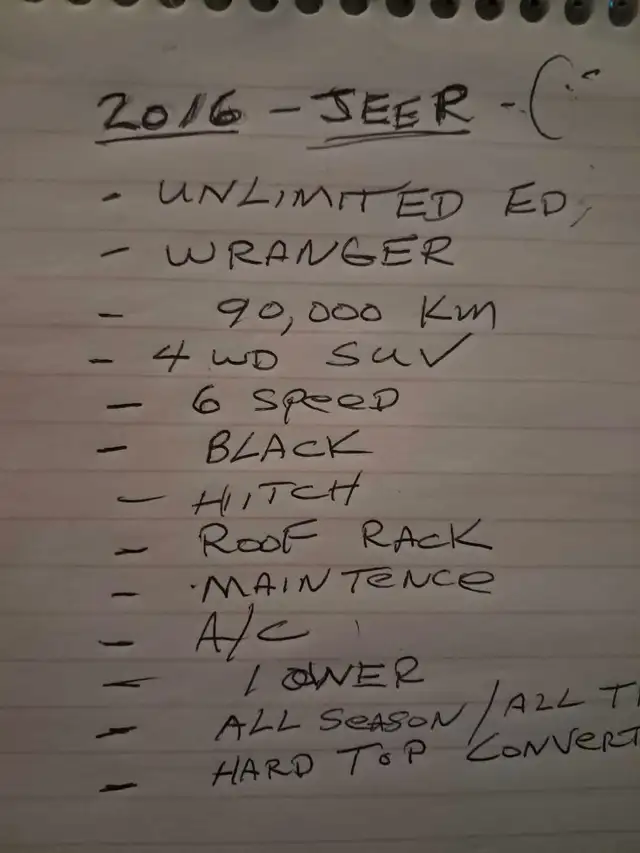 2016 - JEEP - (
- UNLIMITED ED,
- WRANGER
- 90,000 Km
- 4 WD SUV
- 6 SPEED
- BLACK
- HITCH
- ROOF RACK
- MAINTENCE
- A/C
- 1 OWNER
- ALL SEASON / ALL T
- HARD TOP CONVERT